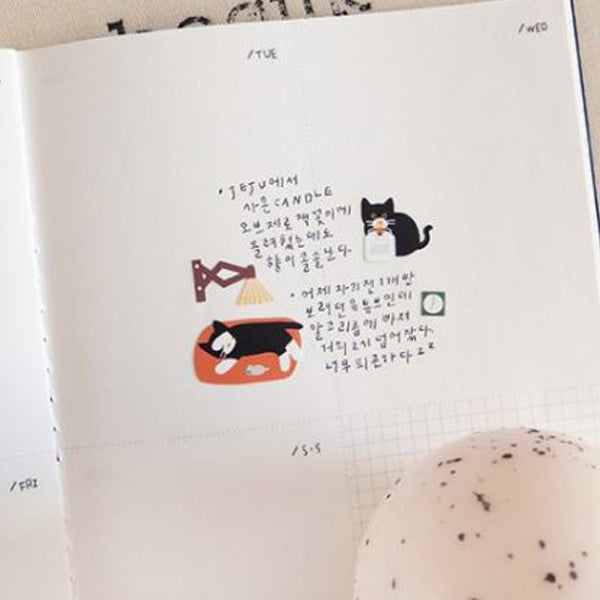 /TUE
/WED
• JEJU에서
사온 CANDLE
오브제로 책꽂이에
올려뒀는데도
향이 솔솔난다.
• 어제 자기전 1개만
보려던 유튜브인데
알고리즘에 빠져
거의 2시 넘어잤다.
너무 피곤하다 ㅋㅋ
/FRI
/S·S